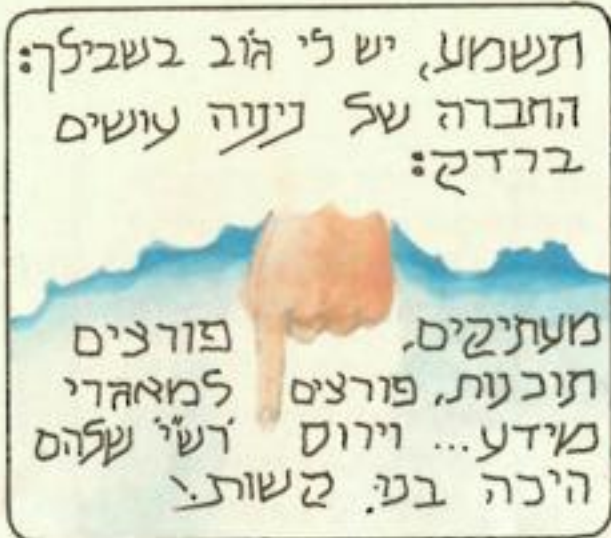 תשמע, יש לי ג'וב בשבילך:
החברה של נינוה עושים
ברדק:
מעתיקים, פורצים
תוכנות, פורצים למאגרי
מידע... וירוס רש"י שלהם
היכה בנו קשות.